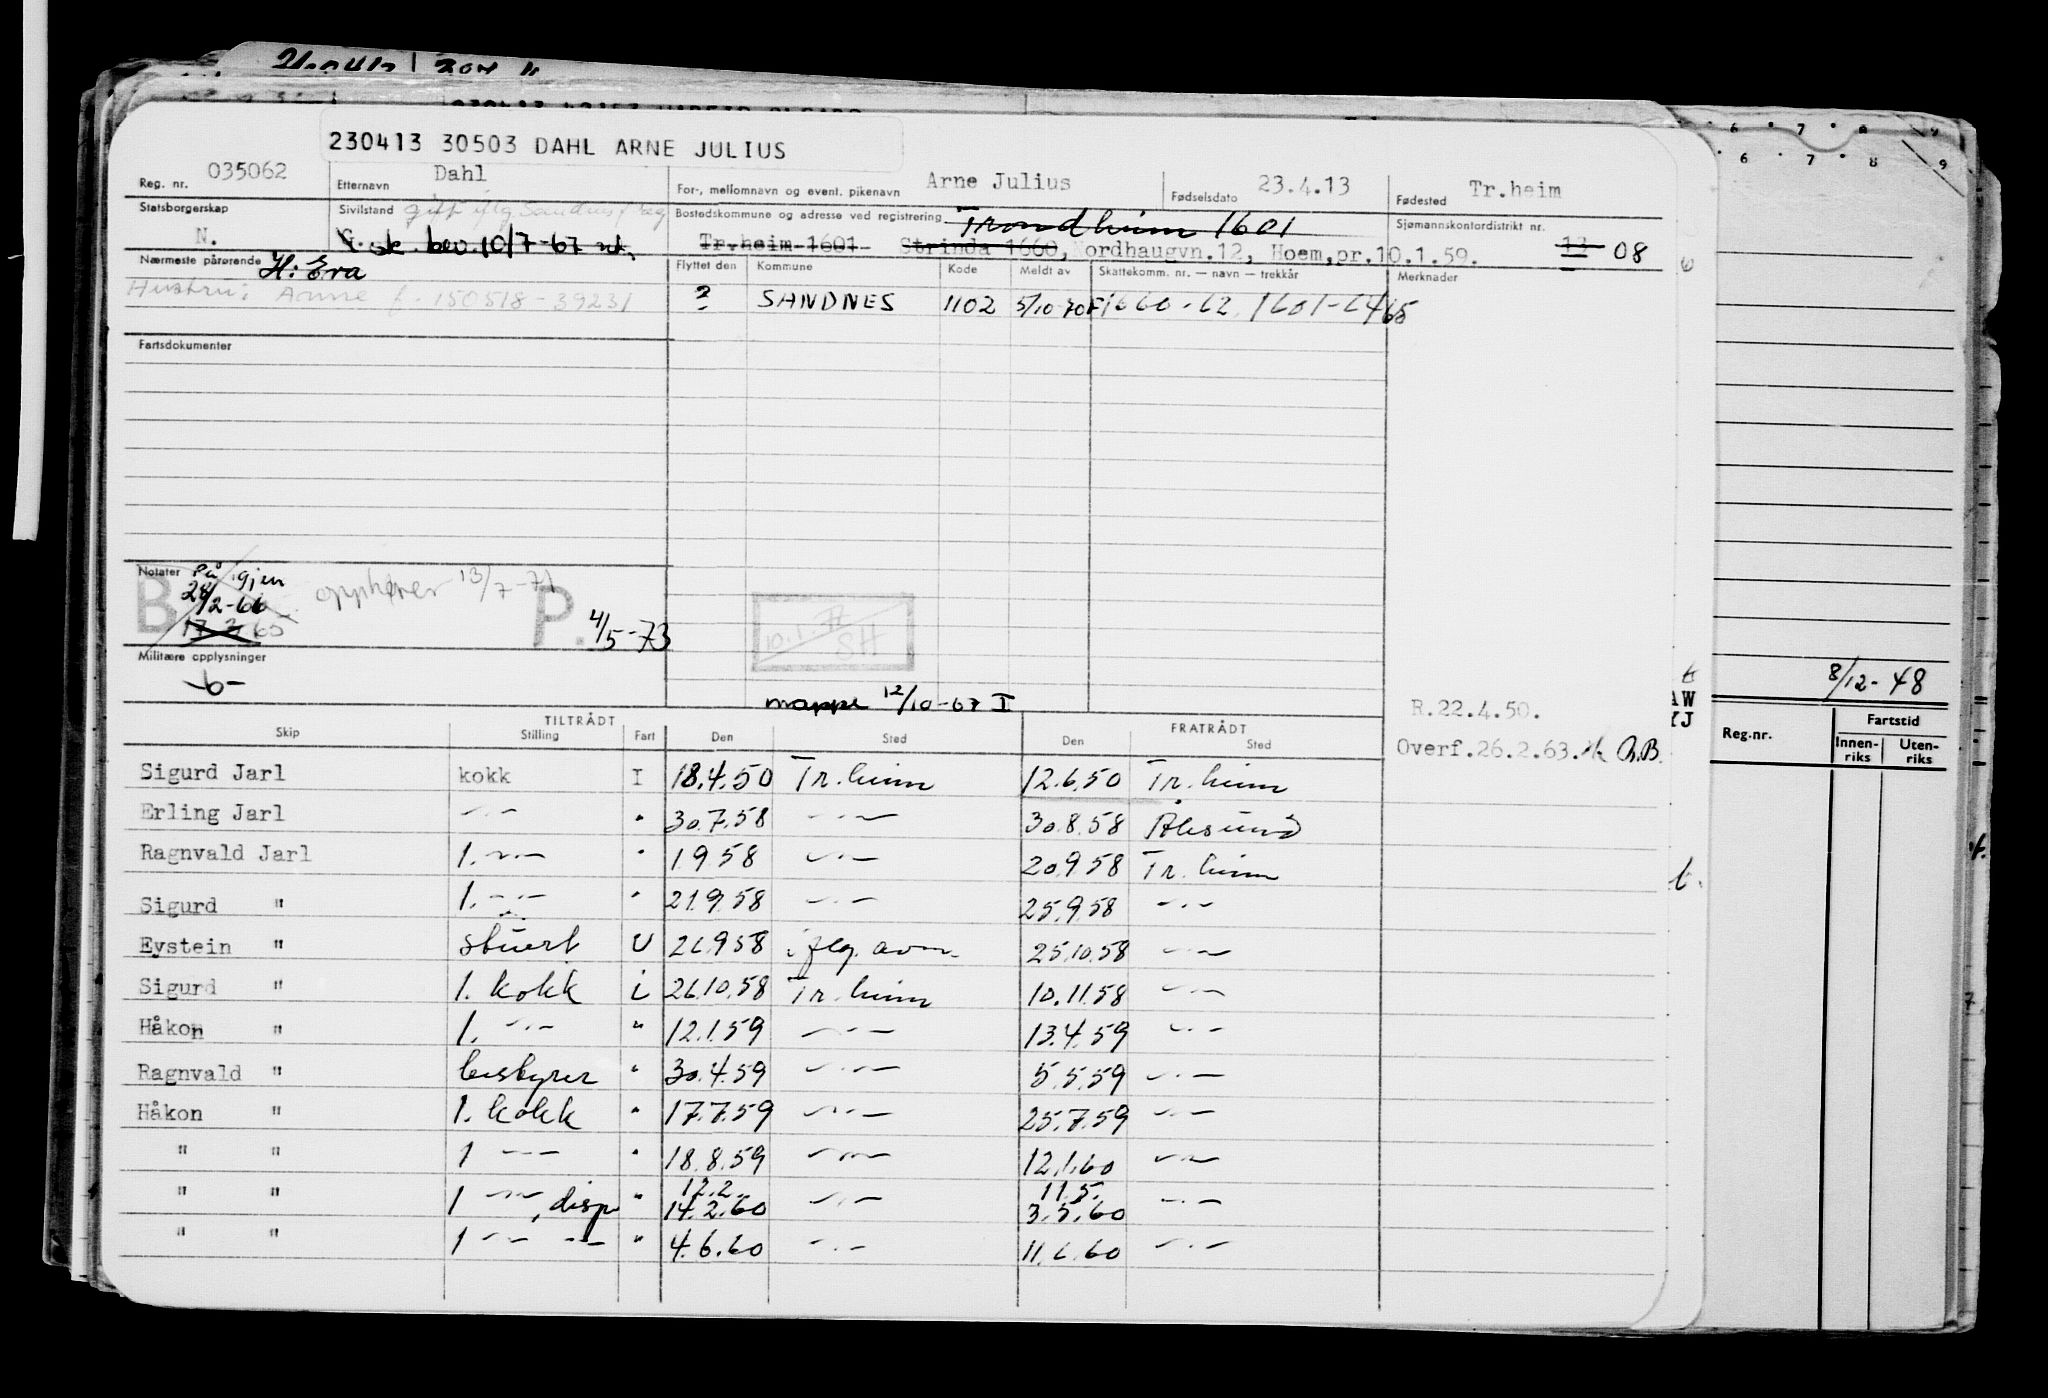 230413 30503 DAHL ARNE JULIUS
Reg. nr. 035062 Etternavn Dahl For-, mellomnavn og event. pikenavn Arne Julius Fødselsdato 23.4.13 Fødested Tr.heim
Statsborgerskap N. Sivilstand gift iflg Sandnes f reg
G. sk. bev. 10/7-67
Bostedskommune og adresse ved registrering Trondheim 1601
Tr.heim 1601 Strinda 1660, Nordhaugvn.12, Hoem, pr.10.1.59.
Sjømannskontordistrikt nr. 13 08
Nærmeste pårørende H: Eva
Hustru: Anne f. 150518-39231
Flyttet den Kommune Kode Meldt av Skattekomm. nr. — navn — trekkår Merknader
? SANDNES 1102 5/10-70 F 1660-62, 1601-64/65
Fartsdokumenter
Notater B På igjen
28/2-66
17-3-65
opphører 13/7-71
P. 4/5-73
10.1.72
SH
Militære opplysninger
-6-
mappe 12/10-67 I
R.22.4.50.
Overf.26.2.63. R.B.
8/12-48
TILTRÅDT FRATRÅDT
Skip Stilling Fart Den Sted Den Sted
Sigurd Jarl kokk I 18.4.50 Tr.heim 12.6.50 Tr.heim
Erling Jarl -"- " 30.7.58 -"- 30.8.58 Ålesund
Ragnvald Jarl 1. -"- " 1.9.58 -"- 20.9.58 Tr.heim
Sigurd " 1. -"- " 21.9.58 -"- 25.9.58 -"-
Eystein " stuert U 26.9.58 iflg. avm. 25.10.58 -"-
Sigurd " 1. kokk i 26.10.58 Tr.heim 10.11.58 -"-
Håkon " 1. -"- " 12.1.59 -"- 13.4.59 -"-
Ragnvald " bestyrer " 30.4.59 -"- 5.5.59 -"-
Håkon " 1. kokk " 17.7.59 -"- 25.7.59 -"-
" " 1 -"- " 18.8.59 -"- 12.1.60 -"-
" " 1 -"-, disp " 12.2. 14.2.60 -"- 11.5. 3.5.60 -"-
" " 1 -"- -"- " 4.6.60 -"- 11.6.60 -"-
Reg.nr. Fartstid
Innen-riks Uten-riks